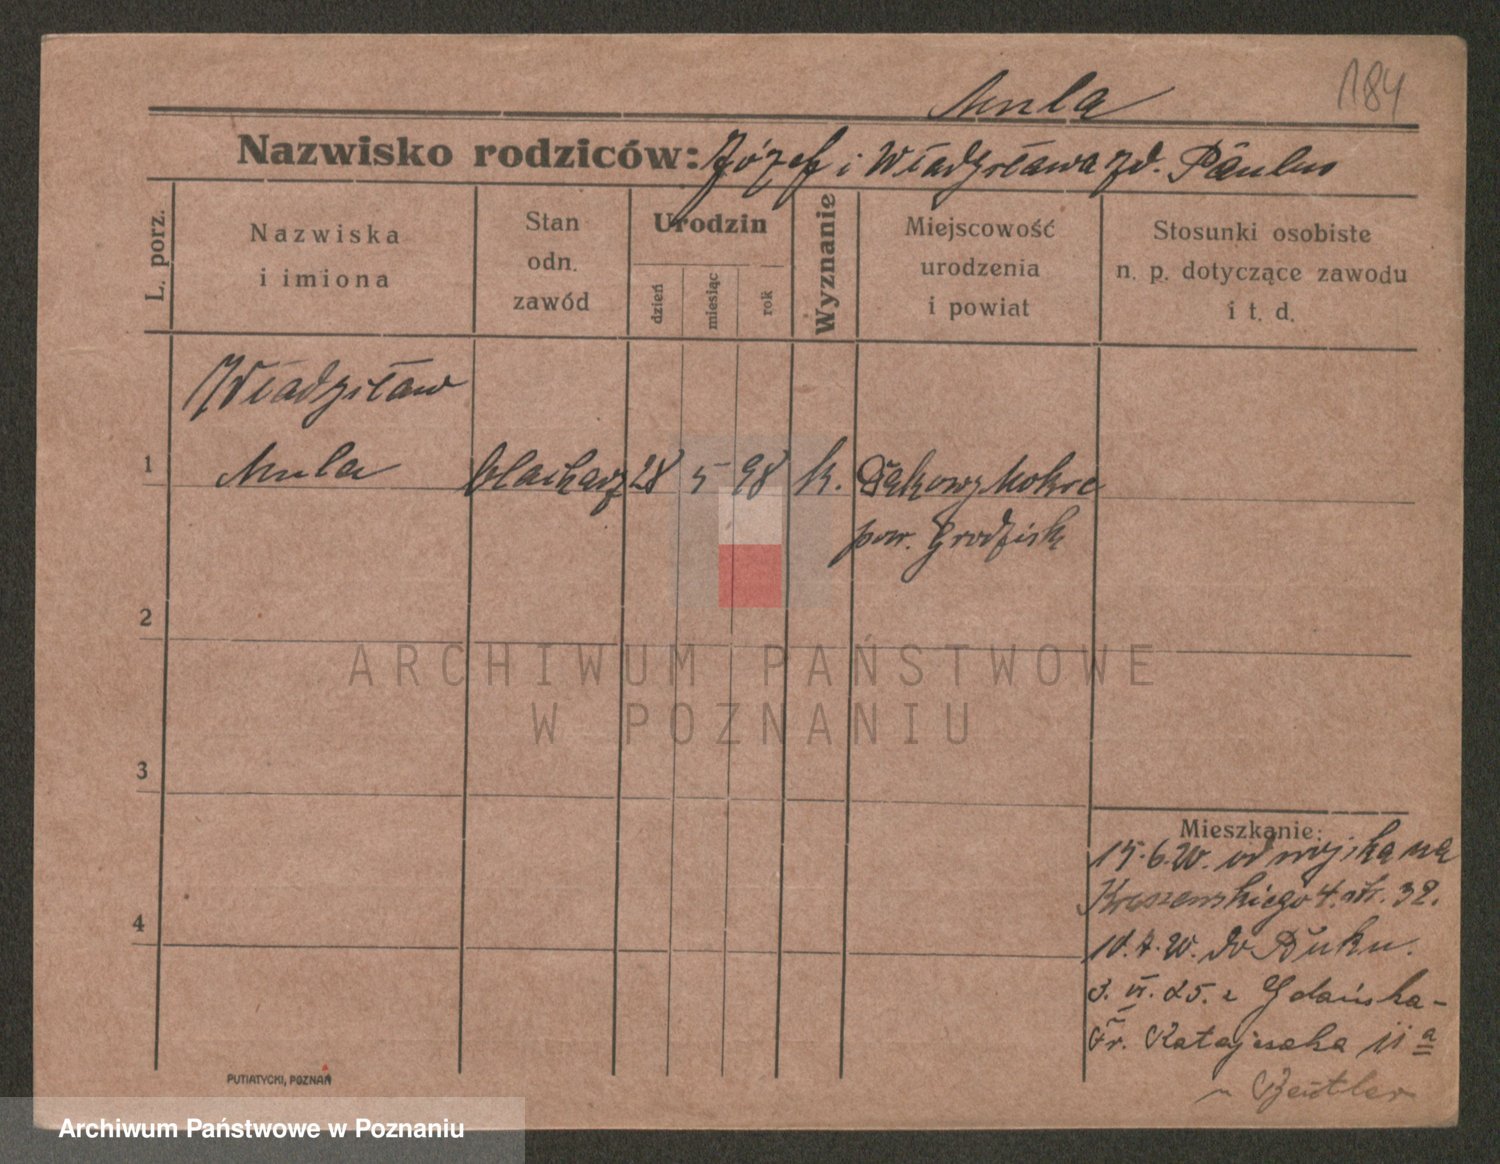 184
Mula
Nazwisko rodziców: Józef i Władysława zd. Paulus
L. porz.
Nazwiska
i imiona
Stan
odn.
zawód
Urodzin
dzień
miesiąc
rok
Wyznanie
Miejscowość
urodzenia
i powiat
Stosunki osobiste
n. p. dotyczące zawodu
i t. d.
Władysław
1 Mula blacharz 28 5 98 k. Dakowy Mokre
pow. Grodzisk
2
3
4
ARCHIWUM PAŃSTWOWE
W POZNANIU
Mieszkanie:
15.6.20. od wojska na
32.
10.7.20. do Buku.
3. VI. 25. z Gdańska-
Fr. Ratajczaka 11 a
u Beutler
PUTIATYCKI, POZNAŃ
Archiwum Państwowe w Poznaniu